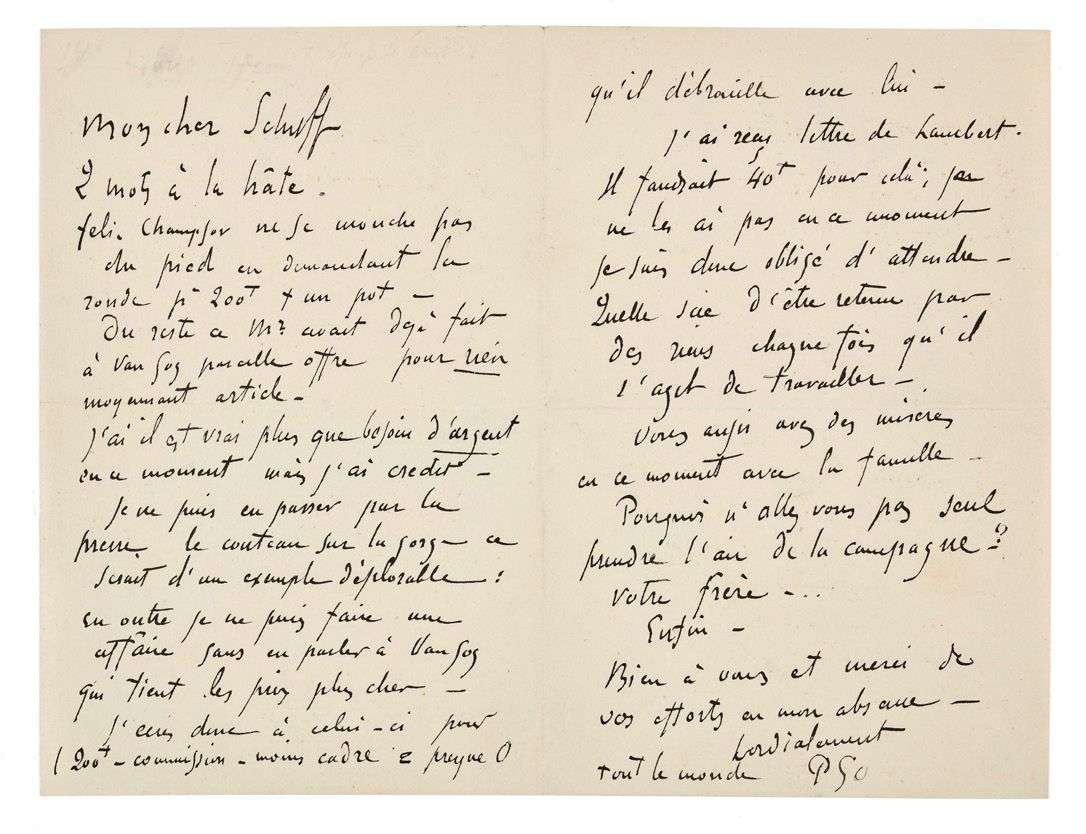 Mon cher Schuff
2 mots à la hâte.
felix Champsor ne se mouche pas
du pied en demandant la
ronde pr 200f + un pot —
Du reste ce Mr avait dejà fait
à Van Gog pareille offre pour rien
moyennant article —
J'ai il est vrai plus que besoin d'argent
en ce moment mais j'ai credit —
Je ne puis en passer par la
presse le couteau sur la gorge ce
serait d'un exemple déplorable :
en outre je ne puis faire une
affaire sans en parler à Van Gog
qui tient les prix plus cher —
J'ecris donc à celui-ci pour
( 200f — commission — moins cadre = presque 0
qu'il débrouille avec lui —
J'ai reçu lettre de Lambert.
Il faudrait 40f pour celà; je
ne les ai pas en ce moment
je suis donc obligé d'attendre —
Quelle scie d'être retenu par
des riens chaque fois qu'il
s'agit de travailler —
Vous aussi avez des misères
en ce moment avec la famille —
Pourquoi n'allez vous pas seul
prendre l'air de la campagne ?
votre frère — ..
Enfin —
Bien à vous et merci de
vos efforts en mon absence —
Cordialement
tout le monde PGo